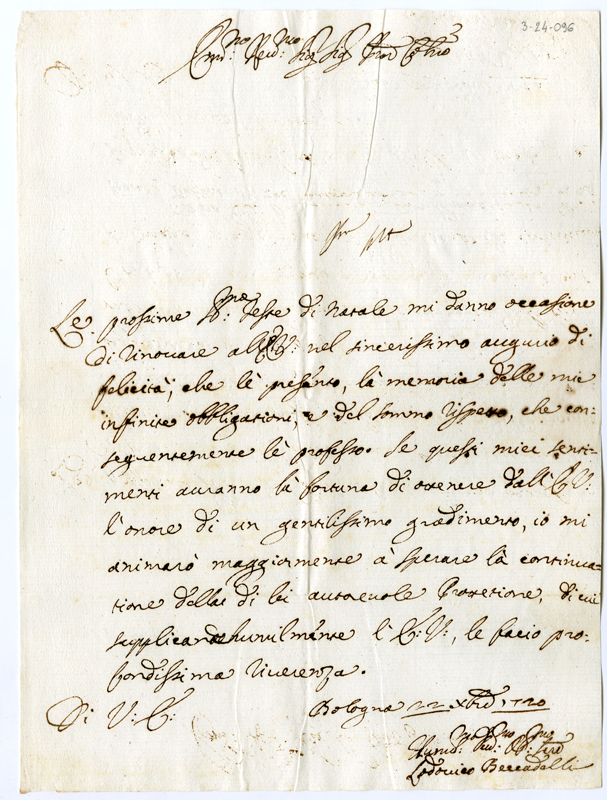 3-24-096
Em:mo Rev:mo Sig Sig Pron Col:mo
Le prossime S:me feste di Natale mi danno occasione
di rinovare all'E:V: nel sincerissimo augurio di
felicità, che lè presento, là memoria delle mie
infinite obbligationi, e del sommo rispetto, che con-
seguentemente lè professo. Se questi miei senti-
menti auranno là fortuna di ottenere dall'E:V:
l'onore di un gentilissimo gradimento, io mi
animarò maggiormente à sperare là continua-
tione della di lei autoreuole Protetione, di cui
supplicando humilmente l'E:V:, le facio pro-
fondissima riuerenza.
Di V:E: Bologna 22 Xbre 1720
Humil:mo Deu:mo Ser:re
Lodovico Beccadelli